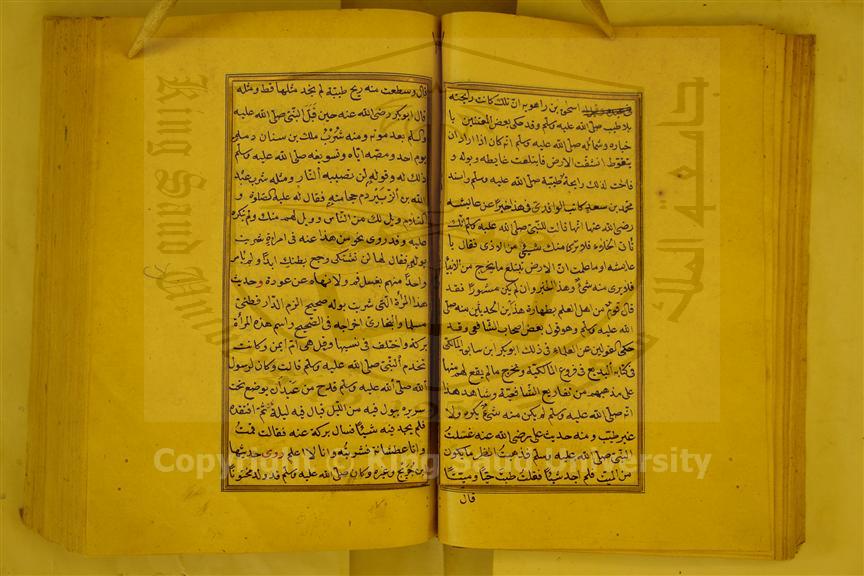 اسحق بن راهويه ان تلك كانت رايحته
بلا طيب صلى الله عليه وسلم وقد حكى بعض المعتنين با
خباره وشمائله صلى الله عليه وسلم انه كان اذا اراد ان
يتغوط انشقت الارض فابتلعت غايطه وبوله و
فاحت لذلك رايحة طيبة صلى الله عليه وسلم واسند
محمد بن سعد كاتب الواقدى فى هذا خبرا عن عايشه
رضى الله عنها انها قالت للنبى صلى الله عليه وسلم انك
تاتى الخلاء فلا نرى منك شيئ من الاذى فقال يا
عايشه او ما علمت ان الارض تبتلع ما يخرج من الانبيا
فلا يرى منه شئ وهذا الخبر وان لم يكن مشهورا فقد
قال قوم من اهل العلم بطهارة هذين الحدثين منه صلى
الله عليه وسلم وهو قول بعض اصحاب الشافعى وقد
حكى القولين عن العلماء فى ذلك ابو بكر بن سابق المالكى
فى كتابه البديع فى فروع المالكية وتخريج ما لم يقع لهم منها
على مذهبهم من تفاريع الشافعية وشاهد هذا
انه صلى الله عليه وسلم لم يكن منه شئ يكره ولا
غير طيب ومنه حديث على رضى الله عنه غسلت
النبى صلى الله عليه وسلم فذهبت انظر ما يكون
من الميت فلم اجد شيئا فقلت طبت حيا وميتا
قال
قال وسطعت منه ريح طيبة لم يجد مثلها قط ومثله
قال ابو بكر رضى الله عنه حين قبل النبى صلى الله عليه
وسلم بعد موته ومنه شرب ملك بن سنان دمه
يوم احد ومصه اياه وتسويغه صلى الله عليه وسلم
ذلك له وقوله لن تصيبه النار ومثله شرب عبد
الله بن الزبير دم حجامته فقال له عليه الصلوة و
السلام ويل لك من الناس وويل لهم منك ولم ينكره
عليه وقد روى نحو من هذا عنه فى امراة شربت
بوله فقال لها لن تشتكى وجع بطنك ابدا ولم يامر
واحدا منهم بغسل فم ولا نهاه عن عودة وحديث
هذا المرأة التى شربت بوله صحيح الزم الدار قطنى
مسلما والبخارى اخراجه فى الصحيح واسم هذه المرأة
بركة واختلف فى نسبها وقيل هى ام ايمن وكانت
تخدم النبى صلى الله عليه وسلم قالت وكان لرسول
الله صلى الله عليه وسلم قدح من عيدان يوضع تحت
سريره يبول فيه من الليل فبال فيه ليلة ثم افتقده
فلم يجد فيه شيئا فسال بركة عنه فقالت قمت
وانا عطشانة فشربته وانا لا اعلم روى حديثها
بن جريج وغيره وكان صلى الله عليه وسلم قد ولد مختونا
Copyright © King Saud University
King Saud University
جامعة الملك